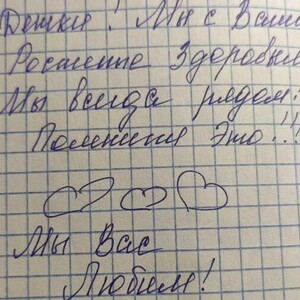 Детки! Мы с Вами
Росление Здоровым
Мы всегда рядом!
Помните Это!!!
Мы Вас
Любим!